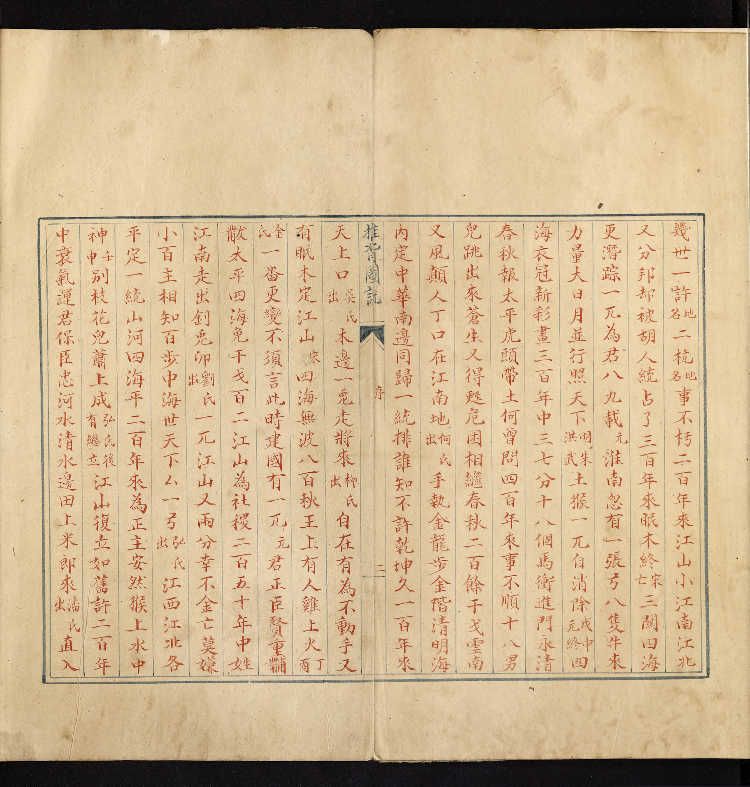 幾世一許地名二杭地名事不朽二百年來江山小江南江北
又分邦却被胡人統占了三百年來眠木終宋亡三關四海
更潛踪一兀為君八九載元淮南忽有一張弓八隻牛來
力量大日月並行照天下明朱洪武土猴一兀自消除戊申元終四
海衣冠新彩畫三百年中三七分十八個馬衝進門永清
春秋報太平虎頭帶土何曾問四百年來事不順十八男
兒跳出來蒼生又得甦危困相繼春秋二百餘干戈雲南
又風顛人丁口在江南地何氏出手執金龍步金階清明海
內定中華南邊同歸一統排誰知不許乾坤久一百年來
推背圖說 序 二
天上口吳氏出木邊一兎走將來柳氏出自在有為不動手又
有眠木定江山宋四海無波八百秋王上有人雞上火丁酉
金氏一番更變不須言此時建國有一兀元君正臣賢重黼
黻太平四海兔干戈百二江山為社稷二百五十年中姓
江南走出釗兎卯劉氏出一兀江山又兩分幸不金亡莫嫌
小百主相知百步中海世天下厶一弓弘氏出江西江北各
平定一統山河四海平二百年來為正主安然猴上水中
神壬申別枝花兒蕭上成弘氏後有繼立江山復立如舊許二百年
中衰氣運君保臣忠河水清水邊田上米郎來潘氏出直入